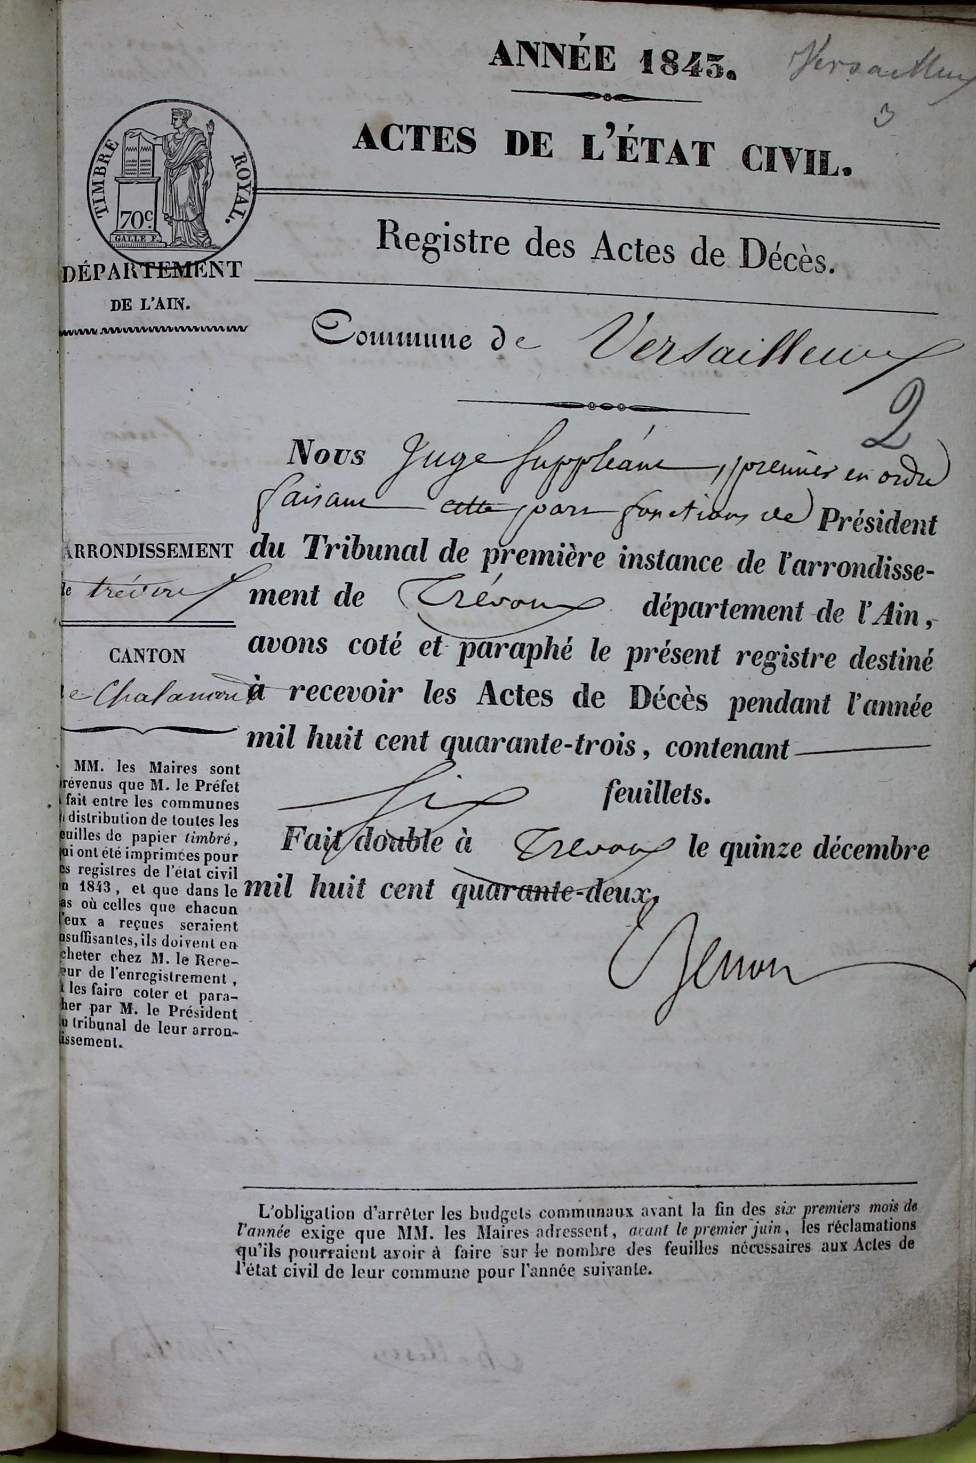 ANNÉE 1843.
Versailleux
3
ACTES DE L'ÉTAT CIVIL.
TIMBRE ROYAL.
70c
GALLE F.
Registre des Actes de Décès.
DÉPARTEMENT
DE L'AIN.
Commune de Versailleux
2
Nous Juge Suppléant, premier en ordre
faisant cette part fonctions de Président
du Tribunal de première instance de l'arrondisse-
ment de Trévoux département de l'Ain,
avons coté et paraphé le présent registre destiné
à recevoir les Actes de Décès pendant l'année
mil huit cent quarante-trois, contenant
six feuillets.
Fait double à Trévoux le quinze décembre
mil huit cent quarante-deux.
ARRONDISSEMENT
de trévoux
CANTON
de Chalamont
MM. les Maires sont
révenus que M. le Préfet
fait entre les communes
distribution de toutes les
euilles de papier timbré,
ui ont été imprimées pour
es registres de l'état civil
n 1843, et que dans le
as où celles que chacun
'eux a reçues seraient
nsuffisantes, ils doivent en
cheter chez M. le Rece-
eur de l'enregistrement,
t les faire coter et para-
her par M. le Président
u tribunal de leur arron-
issement.
L'obligation d'arrêter les budgets communaux avant la fin des six premiers mois de
l'année exige que MM. les Maires adressent, avant le premier juin, les réclamations
qu'ils pourraient avoir à faire sur le nombre des feuilles nécessaires aux Actes de
l'état civil de leur commune pour l'année suivante.